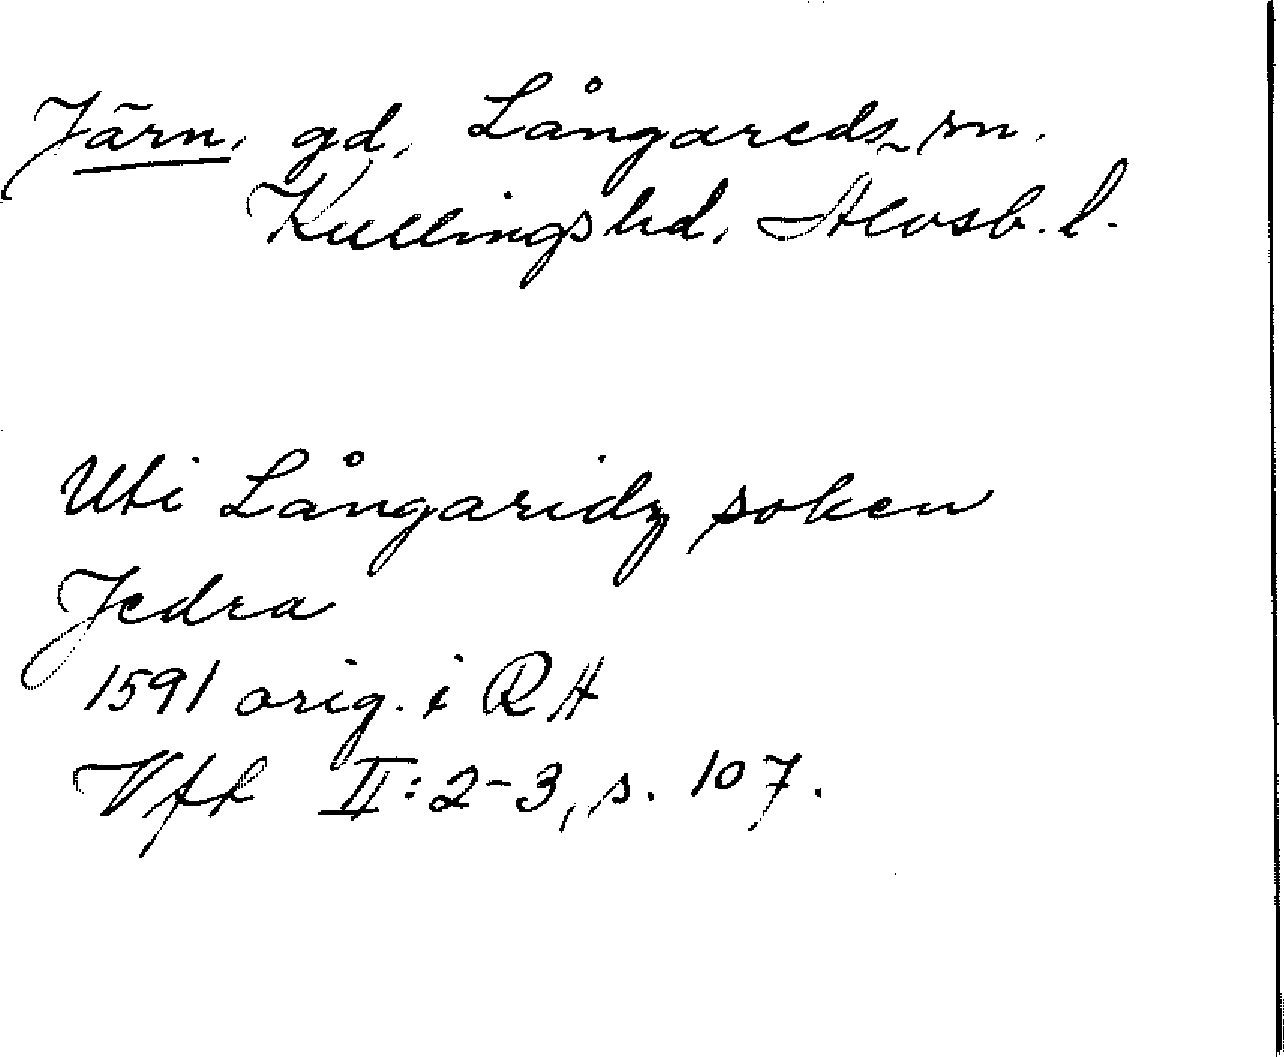 Järn, gd, Långareds sn.
Kullings hd. Älvsb. l.
Uti Långaridz soken
Jedra
1591 orig. i RH
Vff II: 2-3, s. 107.